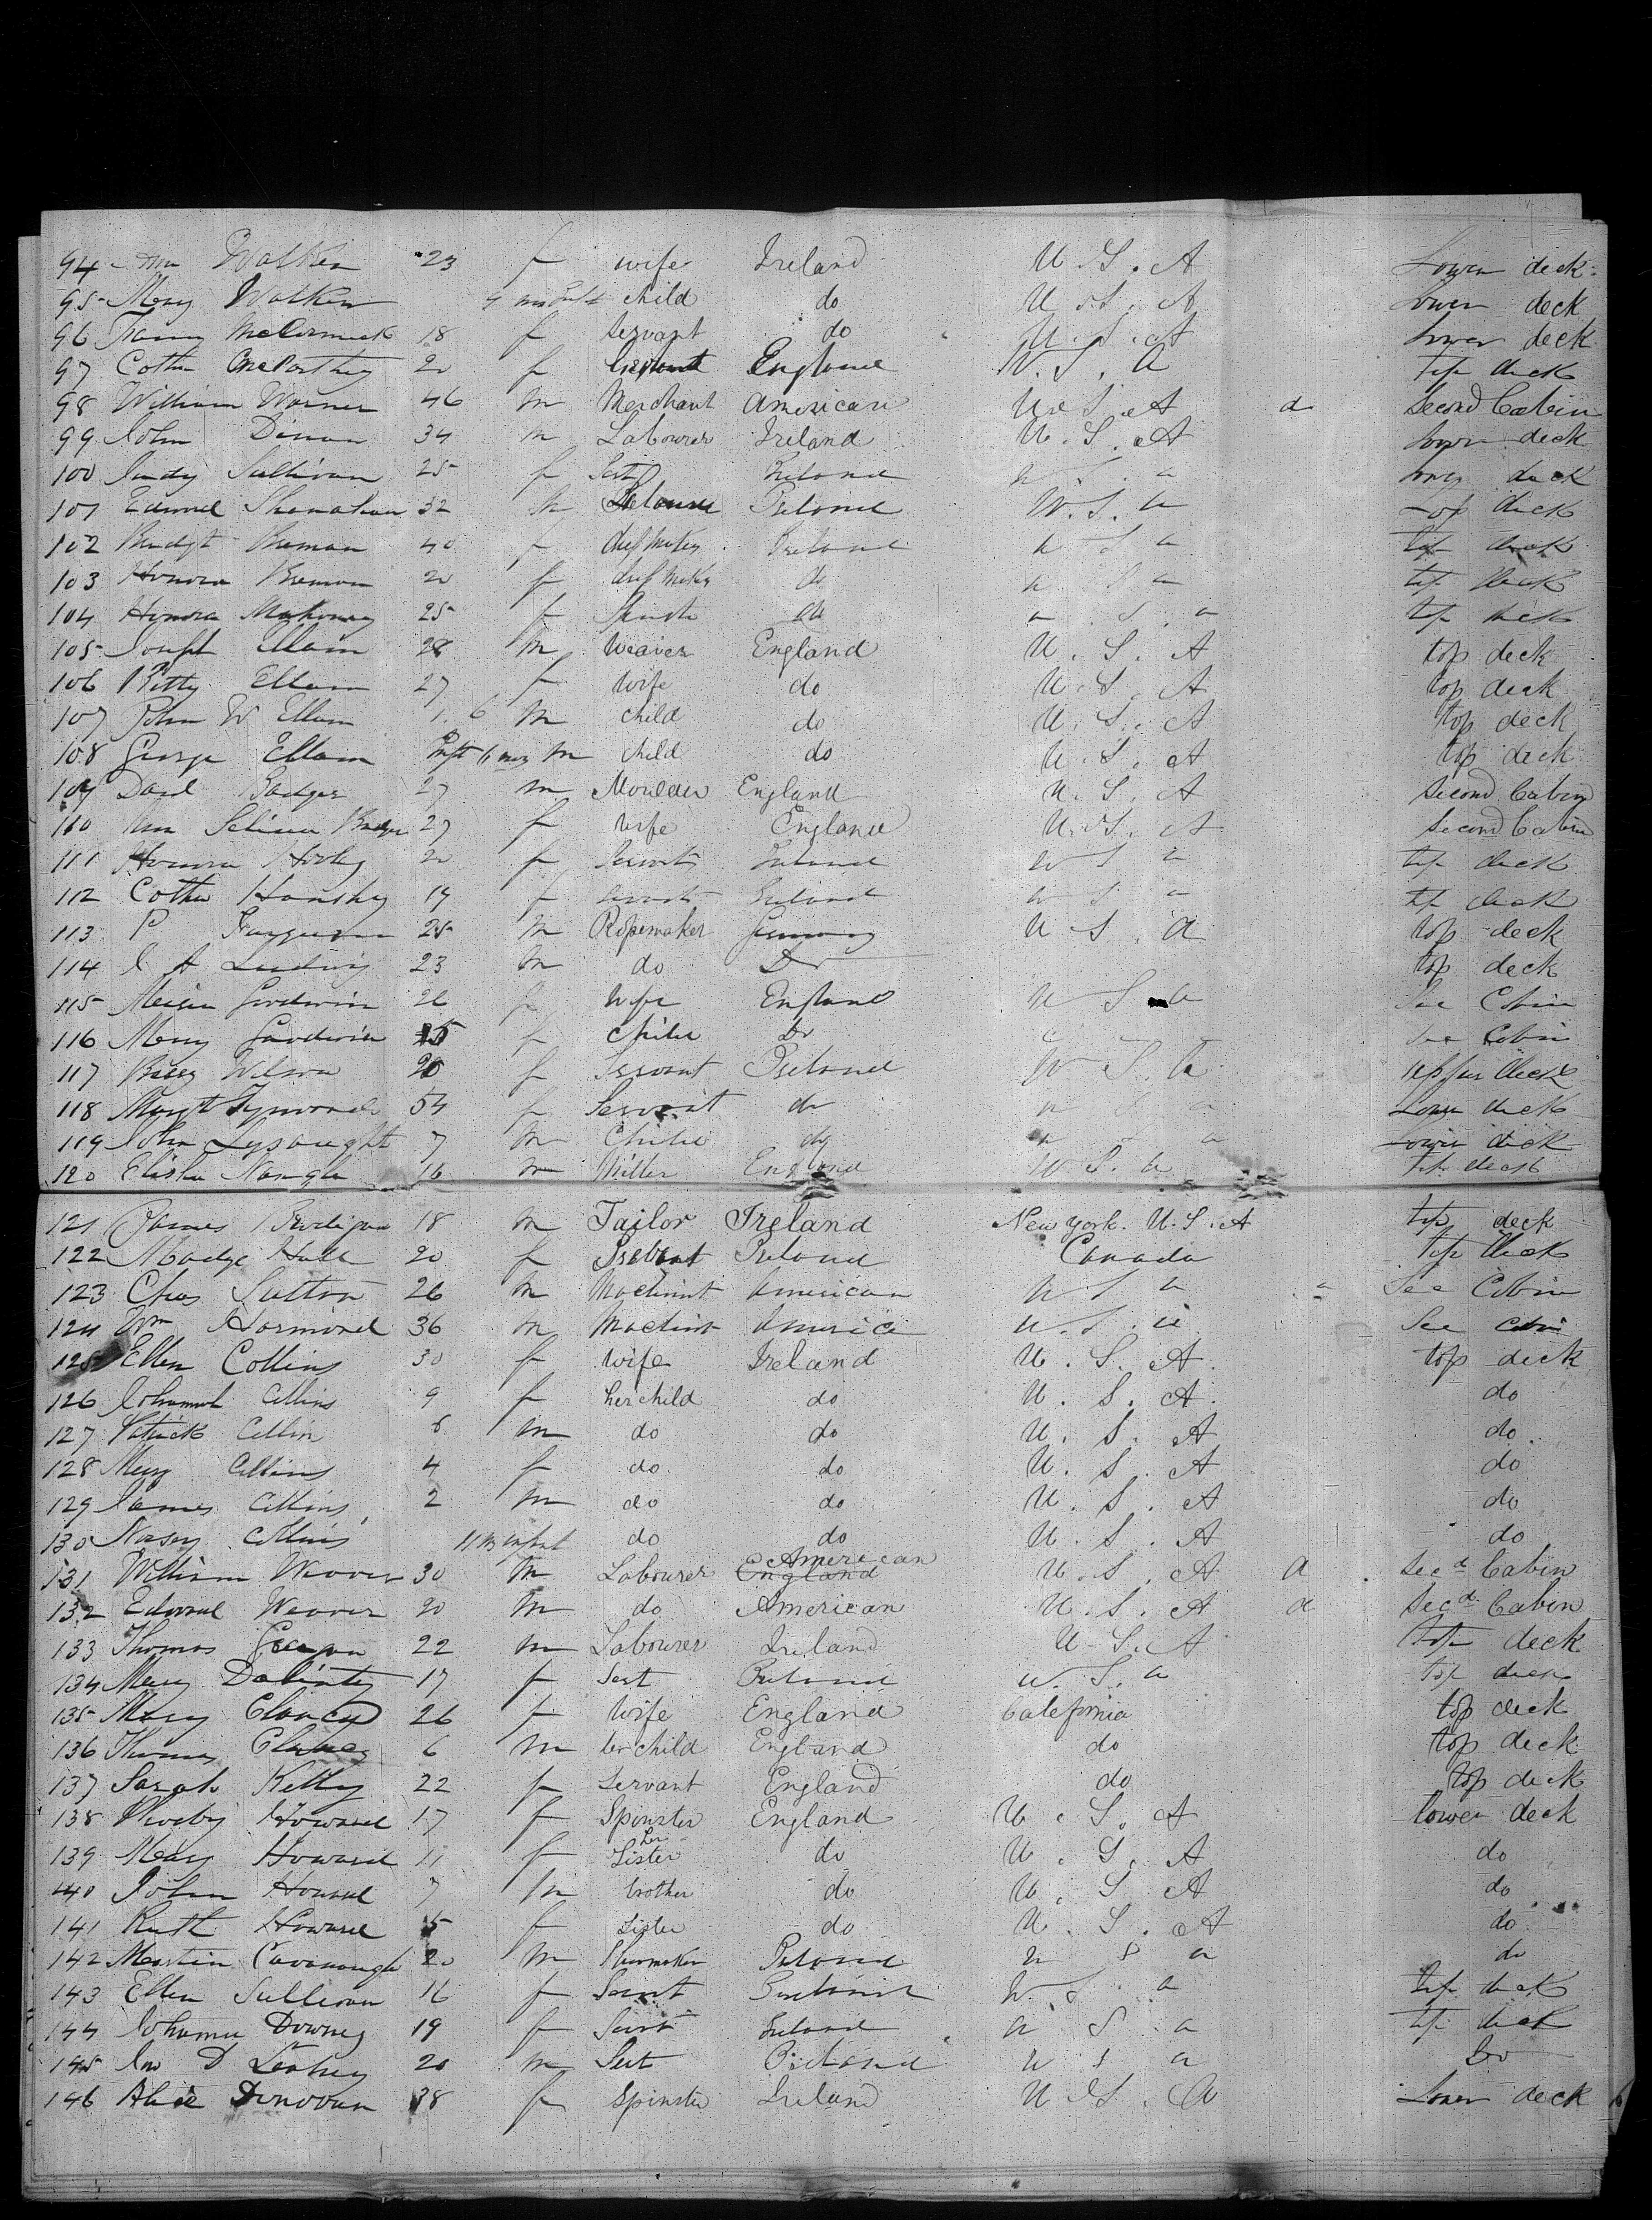 94 Ann Walken 23 f wife Ireland U.S.A Lower deck
95 Mary Walken 9 ms Inft child do U.S.A Lower deck
96 Fanny McCormick 18 f Servant do U.S.A Lower deck
97 Cathe McCarthy 20 f Servant England U.S.A top deck
98 William Warner 46 m Merchant American U.S.A a Second Cabin
99 John Dinan 34 m Labourer Ireland U.S.A Lower deck
100 Judy Sullivan 25 f Sert Ireland U S a Lower deck
101 Edward Shanahan 32 m Laborer Ireland U.S.a top deck
102 Bridgt Breman 40 f dress maker Ireland U S a top deck
103 Honora Breman 20 f dress maker do U S a top deck
104 Honora Mahoney 25 f Spinster do U.S.a top deck
105 Joseph Ellam 28 m Weaver England U.S.A top deck
106 Betty Ellam 27 f wife do U.S.A top deck
107 John W Ellam 1.6 m child do U.S.A top deck
108 George Ellam Inft 6 mos m child do U.S.A top deck
109 Davd Badger 27 m Moulder England U.S.A Second Cabin
110 Ann Selina Badger 27 f wife England U.S.A Second Cabin
111 Honora 20 f Servant Ireland U S a top deck
112 Cathe 19 f Servant Ireland U S a top deck
113 P Ferguson 25 m Ropemaker Germany U S.A top deck
114 A Ludwig 23 m do Do top deck
115 Goodwin 26 f wife England U S a Sec Cabin
116 Mary Goodwin 5 f child Do Sec Cabin
117 Wilson 20 f Servant Ireland U S.a upper deck
118 Margt 54 f Servant do U S a Lower deck
119 John Lysaught 7 m Child do U S a Lower deck
120 Elisha 16 m Miller England U S.a top deck
121 James 18 m Tailor Ireland New York. U.S.A top deck
122 Madge Hall 20 f Servant Ireland Canada top deck
123 Chas Sutton 26 m Machinist American U S a Sec Cabin
124 Wm Hormond 36 m Machinist America U.S.a Sec Cabin
125 Ellen Collins 30 f wife Ireland U.S.A. top deck
126 Johannah Collins 9 f her child do U.S.A. do
127 Patrick Collins 6 m do do U.S.A do
128 Mary Collins 4 f do do U.S.A do
129 James Collins 2 m do do U.S.A do
130 Collins 11 m infant do do U.S.A do
131 William Weaver 30 m Labourer England American U.S.A a Secd Cabin
132 Edward Weaver 20 m do American U.S.A a Secd Cabin
133 Thomas 22 m Labourer Ireland U.S.A top deck
134 Mary 17 f Sert Ireland U.S.a top deck
135 Mary Clancy 26 f Wife England California top deck
136 Thomas Clancy 6 m her child England do top deck
137 Sarah Kelly 22 f Servant England do top deck
138 Phoeby Howard 17 f Spinster England U.S.A lower deck
139 Mary Howard 11 f her Sister do U.S.A do
140 John Howard 7 m brother do U.S.A do
141 Ruth Howard 5 f sister do U.S.A do
142 Martin Cavanaugh 20 m Shoemaker Ireland U S a do
143 Ellen Sullivan 16 f Servt Ireland U.S.a top deck
144 Johanna Downey 19 f Servt Ireland U S a top deck
145 Jno D 20 m Sert Ireland U S a Do
146 Alice Donovan 38 f Spinster Ireland U.S.A Lower deck